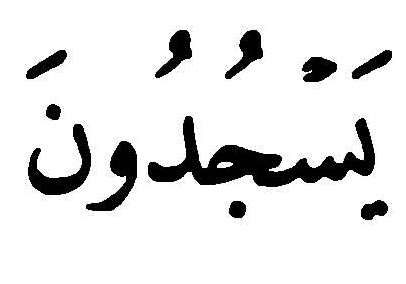 يَسْجُدُونَ